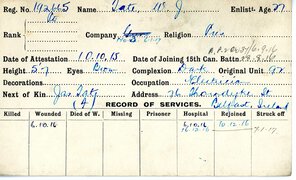 Reg. No. 192665 Name Tate W. J. Enlist- Age 27
Rank Pte Company No 3 Coy Religion Pres
Date of Attestation 10.10.15 Date of Joining 15th Can. Battn.
Height 5'7 Eyes Brown Complexion Dark Original Unit 92
Decorations Occupation Electrician
Next of Kin Jas. Tate Address
(F) Belfast, Ireland
RECORD OF SERVICES.
Killed Wounded Died of W. Missing Prisoner Hospital Rejoined Struck off
6.10.16 6.10.16 10.12.16
7.1.17